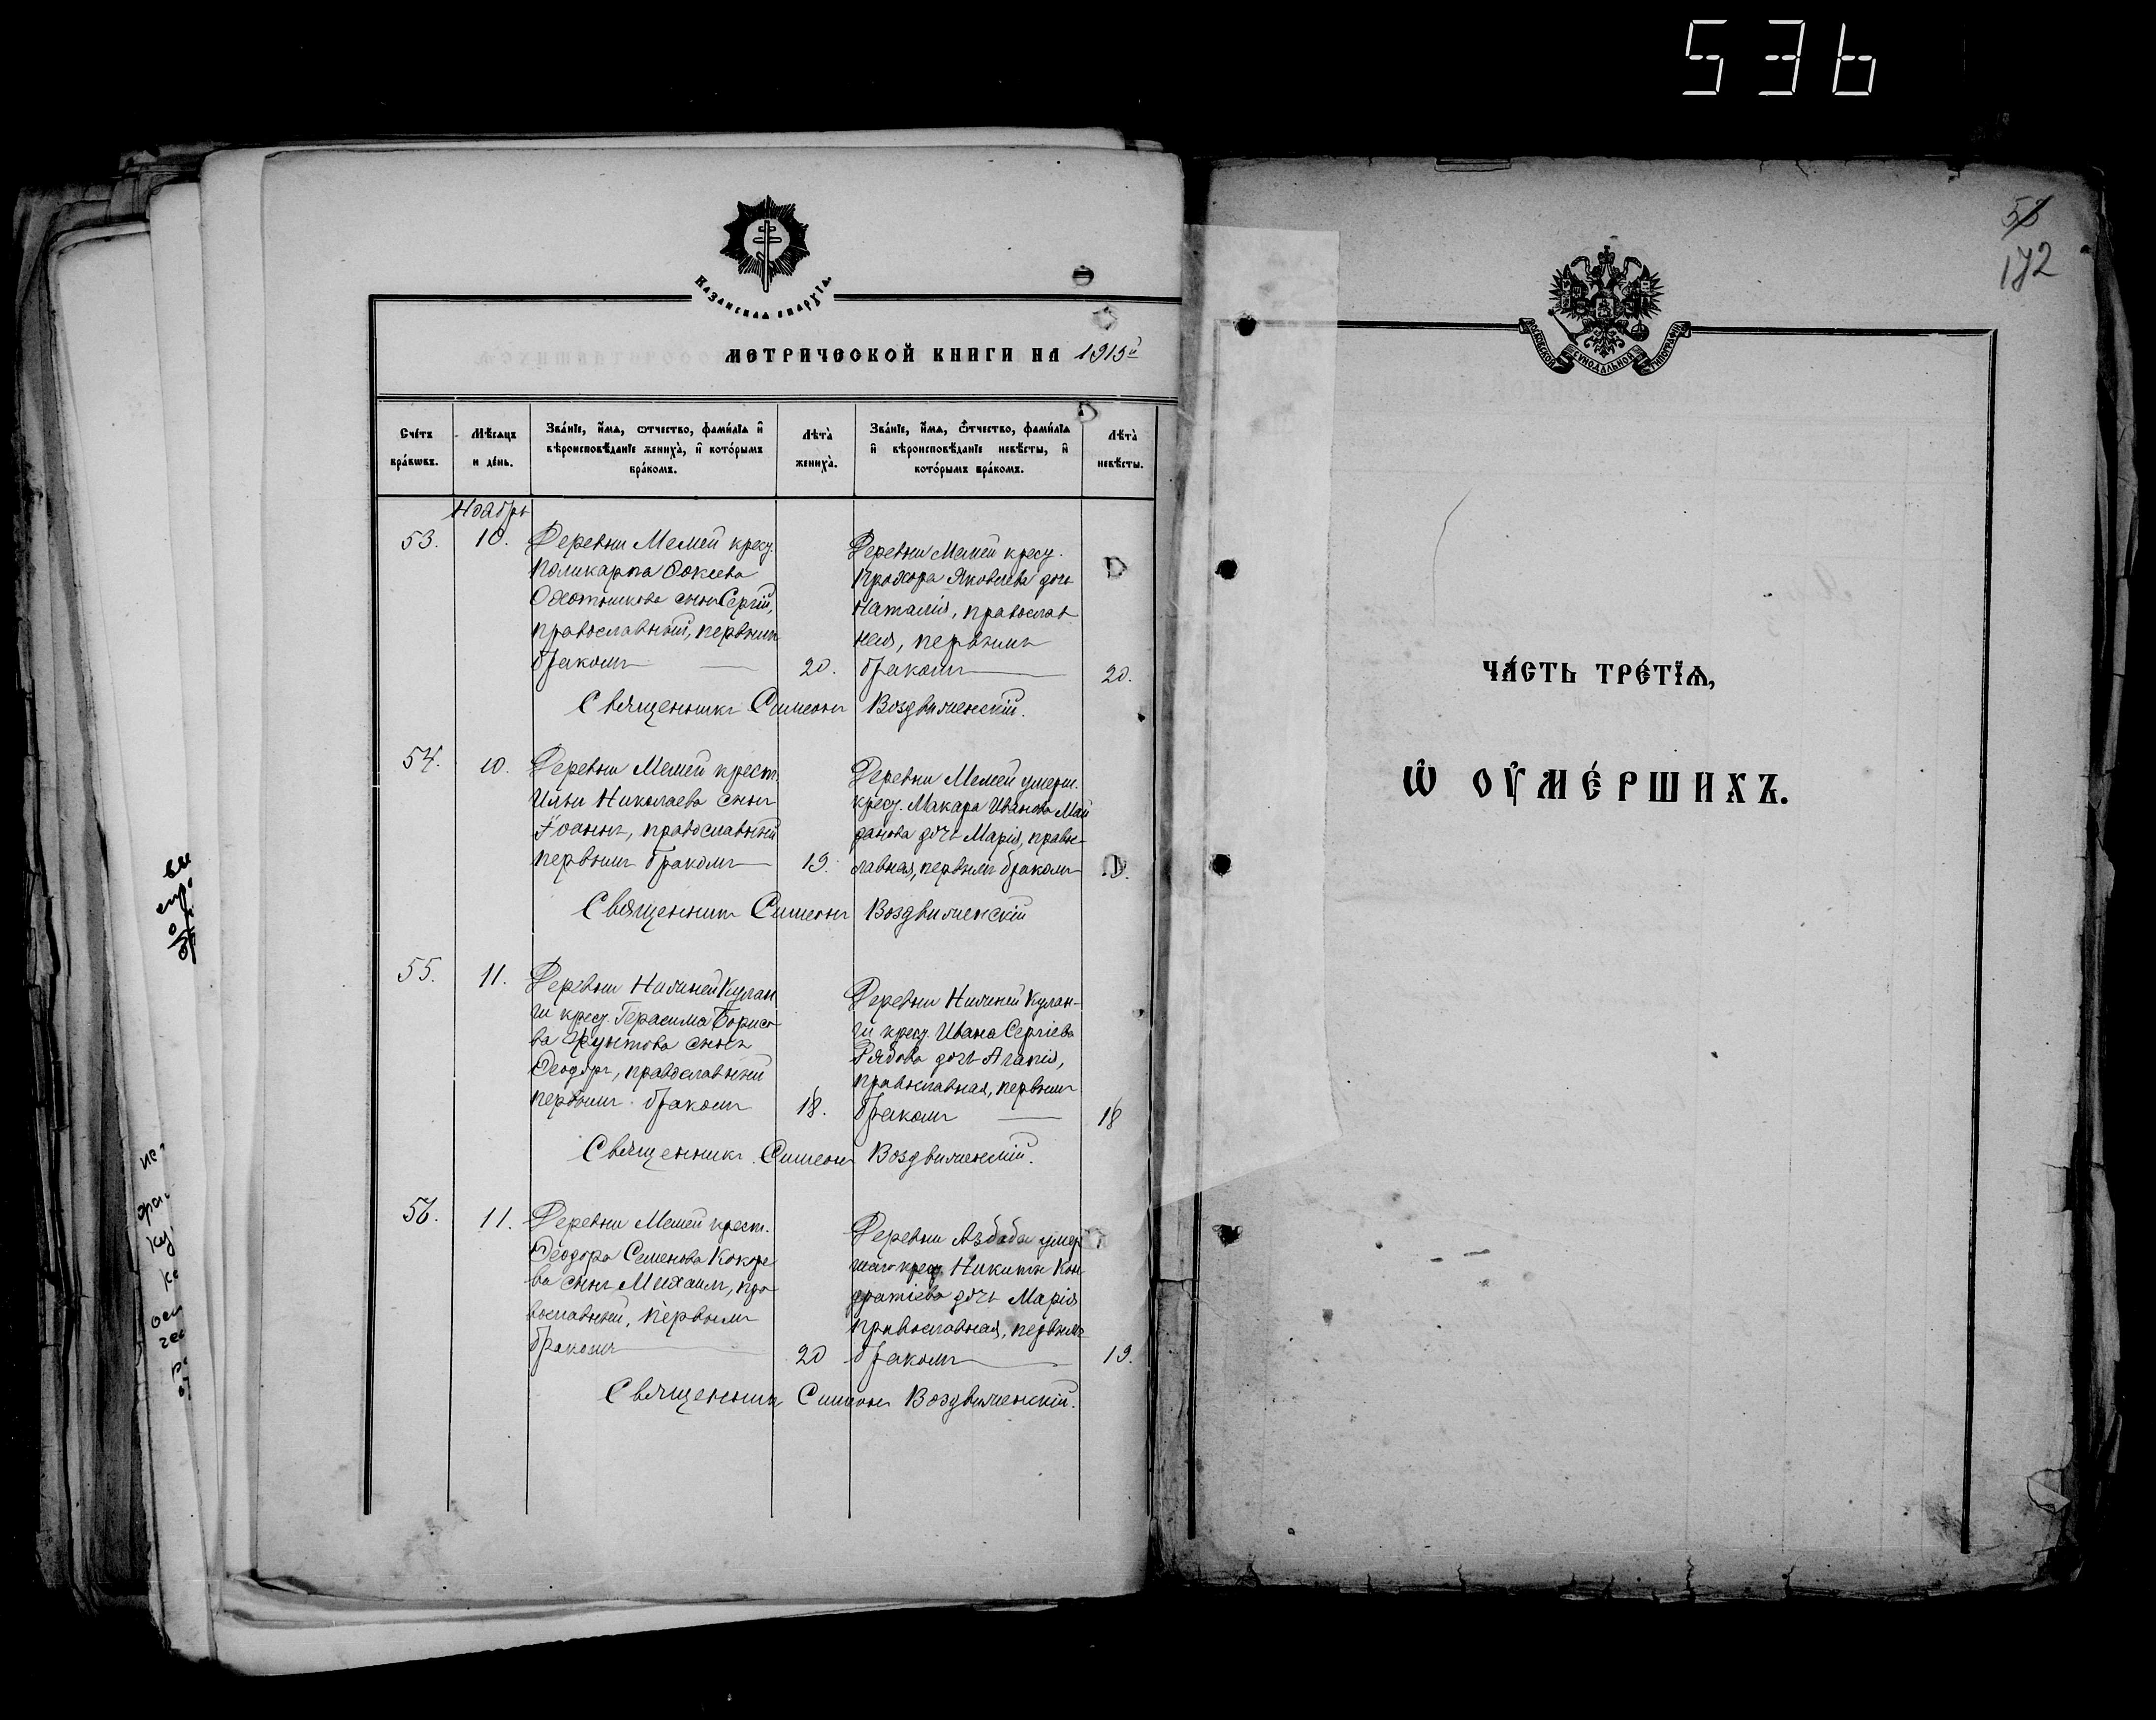 536
Казанская епархія.
МЕТРИЧЕСКОЙ КНИГИ НА 1915й
Сче́тъ бра́кѡвъ.
Мѣ́сяцъ и де́нь.
Зва́нїе, и҆́мѧ, ѻ҆тчество, фами́лїѧ и҆ вѣроисповѣ́данїе жениха̀, и҆ кото́рымъ бра́комъ.
Лѣта̀ жениха̀.
Зва́нїе, и҆́мѧ, ѻ҆́тчество, фами́лїѧ и҆ вѣроисповѣ́данїе невѣ́сты, и҆ кото́рымъ бра́комъ.
Лѣта̀ невѣ́сты.
Ноябрь
53.
10.
Деревни Мемей крест.
Поликарпа Фокеева
Охотникова сынъ Сергій,
православный, первымъ
бракомъ
20.
Деревни Мемей крест.
Прохора Яковлева дочь
Наталія, православ
ная, первымъ
бракомъ
20.
Священникъ Симеонъ Воздвиженскій.
54.
10.
Деревни Мемей крест.
Ильи Николаева сынъ
Іоаннъ, православный
первымъ бракомъ
19.
Деревни Мемей умерш.
крест. Макара Иванова Май
данова дочь Марія, право-
славная, первымъ бракомъ
Священникъ Симеонъ Воздвиженскій
55.
11.
Деревни Нижней Кулан
ги крест. Герасима Борисо
ва сынъ
Ѳеодоръ, православный
первымъ бракомъ
18.
Деревни Нижней Кулан-
ги крест. Ивана Сергіева
Рябова дочь Агапія,
православная, первымъ
бракомъ
18
Священникъ Симеонъ Воздвиженскій.
56.
11.
Деревни Мемей крест.
Ѳеодора Семенова Кокоре
ва сынъ Михаилъ, пра
вославный, первымъ
бракомъ
20
Деревни Азбабы умер
шаго крест. Никиты Кон
дратіева дочь Марія
православная, первымъ
бракомъ
19.
Священникъ Симеонъ Воздвиженскій.
58
172
МОСКОВСКОЙ СѴНОДАЛЬНОЙ ТИПОГРАФІИ
ЧА́СТЬ ТРЕ́ТЇѦ,
Ѡ҆ ОУ҆МЕ́РШИХЪ.